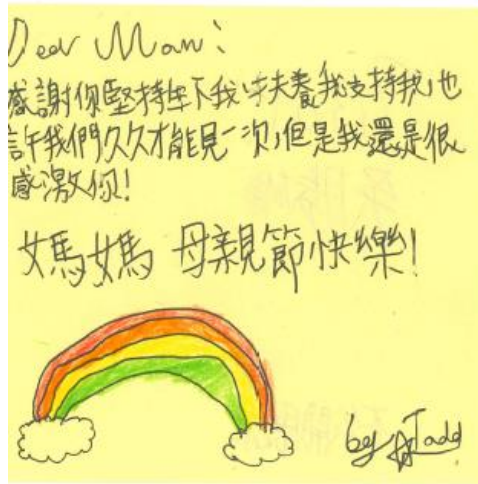 Dear Mom:
感謝你堅持生下我,扶養我支持我,也
許我們久久才能見一次,但是我還是很
感激你!
媽媽 母親節快樂!
by Tadd